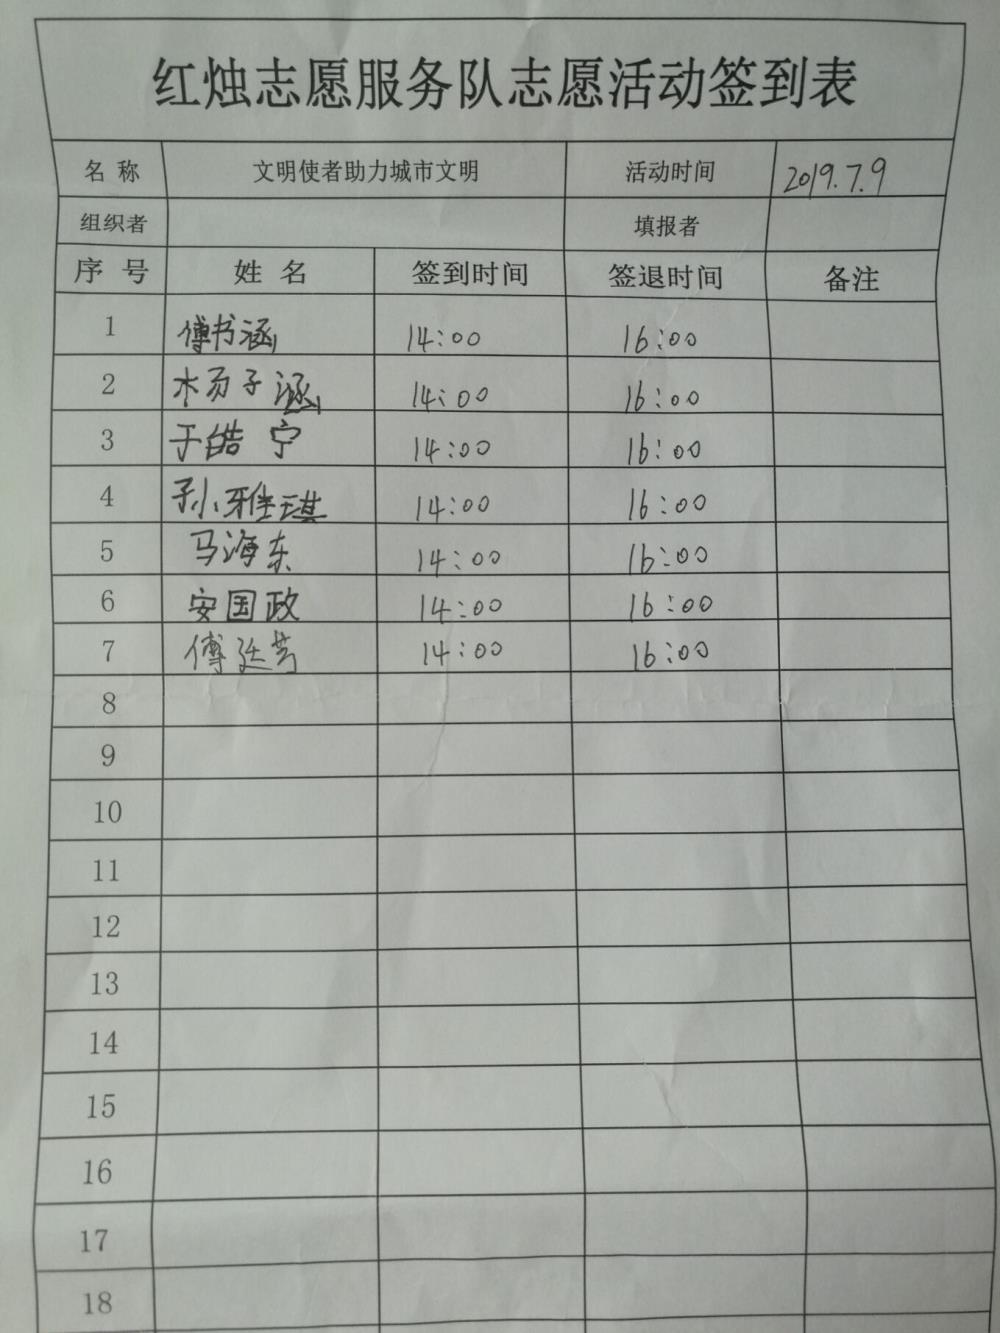 红烛志愿服务队志愿活动签到表
名 称 文明使者助力城市文明 活动时间 2019.7.9
组织者 填报者
序 号 姓 名 签到时间 签退时间 备注
1 傅书涵 14:00 16:00
2 杨子涵 14:00 16:00
3 于皓宁 14:00 16:00
4 孙雅琪 14:00 16:00
5 马海东 14:00 16:00
6 安国政 14:00 16:00
7 傅廷芳 14:00 16:00
8
9
10
11
12
13
14
15
16
17
18